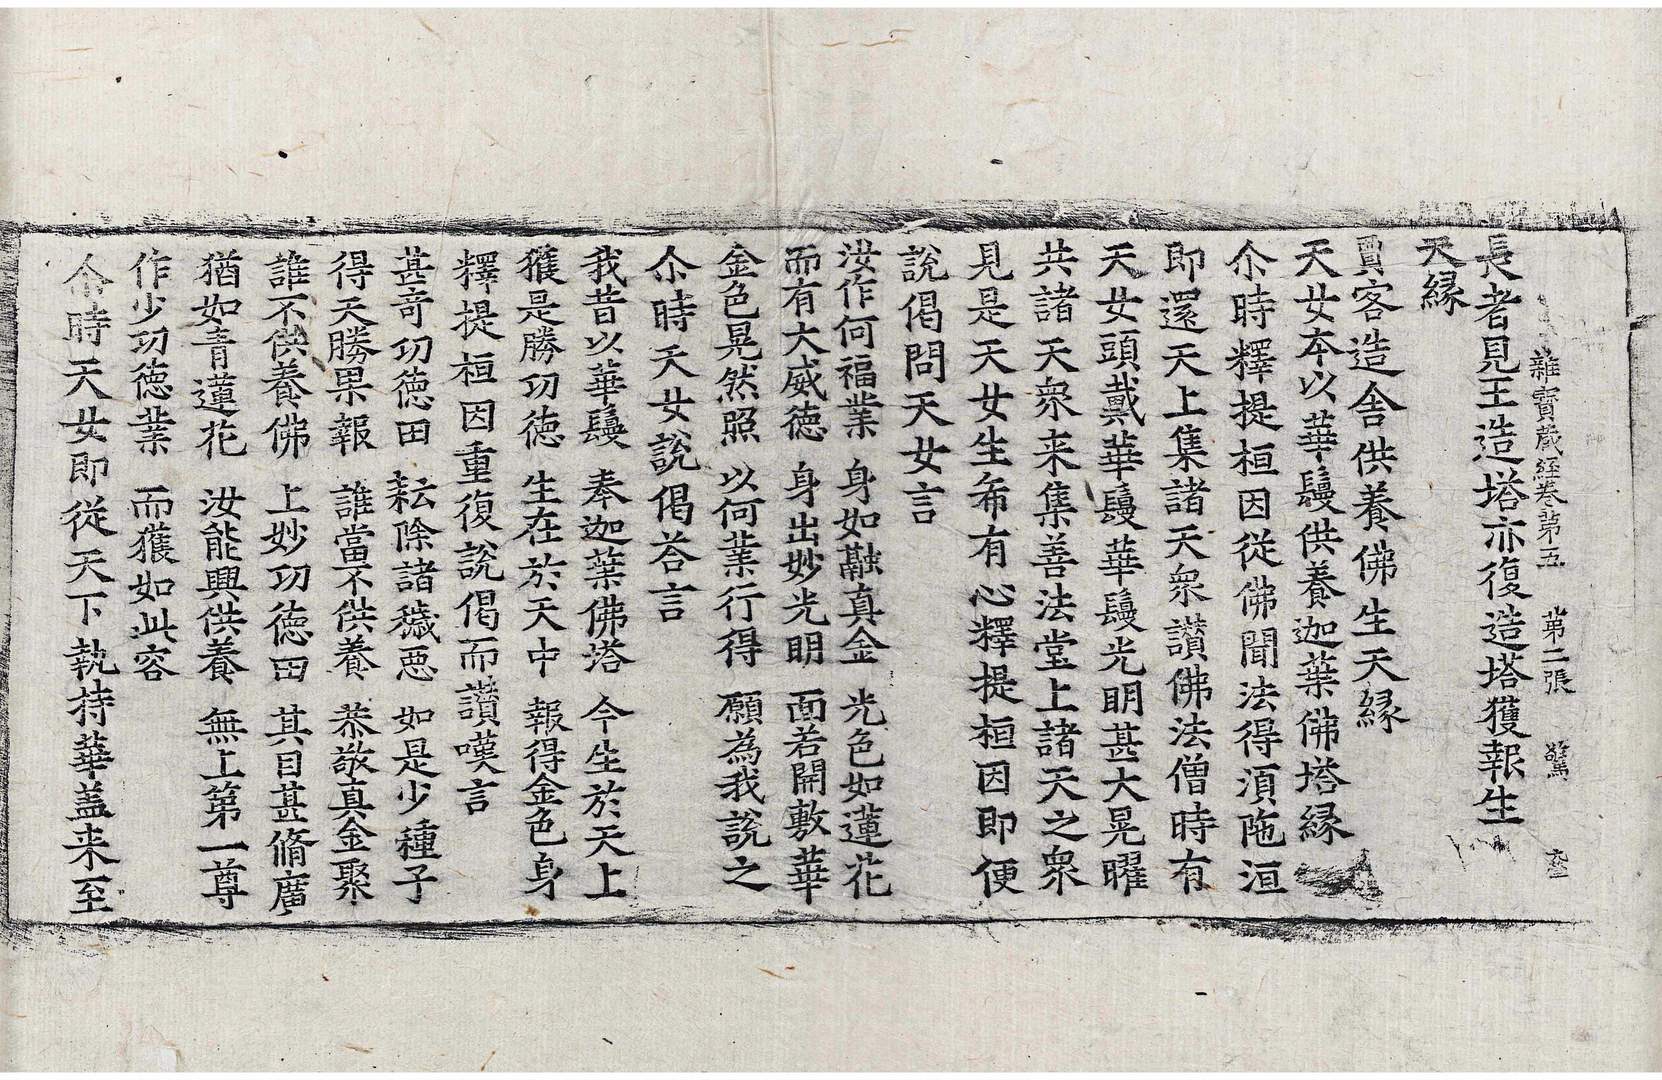 雜寶蔵経巻苐五　苐二張　驚
長者見王造塔亦復造塔獲報生
天縁
賈客造舎供養佛生天縁
天女本以華鬘供養迦葉佛塔縁
尒時釋提桓因從佛聞法得湏陁洹
即還天上集諸天衆讃佛法僧時有
天女頭戴華鬘華鬘光明甚大晃曜
共諸天衆来集善法堂上諸天之衆
見是天女生希有心釋提桓因即便
說偈問天女言
汝作何福業　身如融真金　光色如蓮花
而有大威徳　身出妙光明　面若開敷華
金色晃然照　以何業行得　願為我說之
尒時天女說偈荅言
我昔以華鬘　奉迦葉佛塔　今生於天上
獲是勝功徳　生在於天中　報得金色身
釋提桓因重復說偈而讃嘆言
甚竒功徳田　耘除諸穢惡　如是少種子
得天勝果報　誰當不供養　恭敬真金聚
誰不供養佛　上妙功徳田　其目甚脩廣
猶如青蓮花　汝能興供養　無上第一尊
作少功徳業　而獲如此容
尒時天女即從天下執持華盖来至